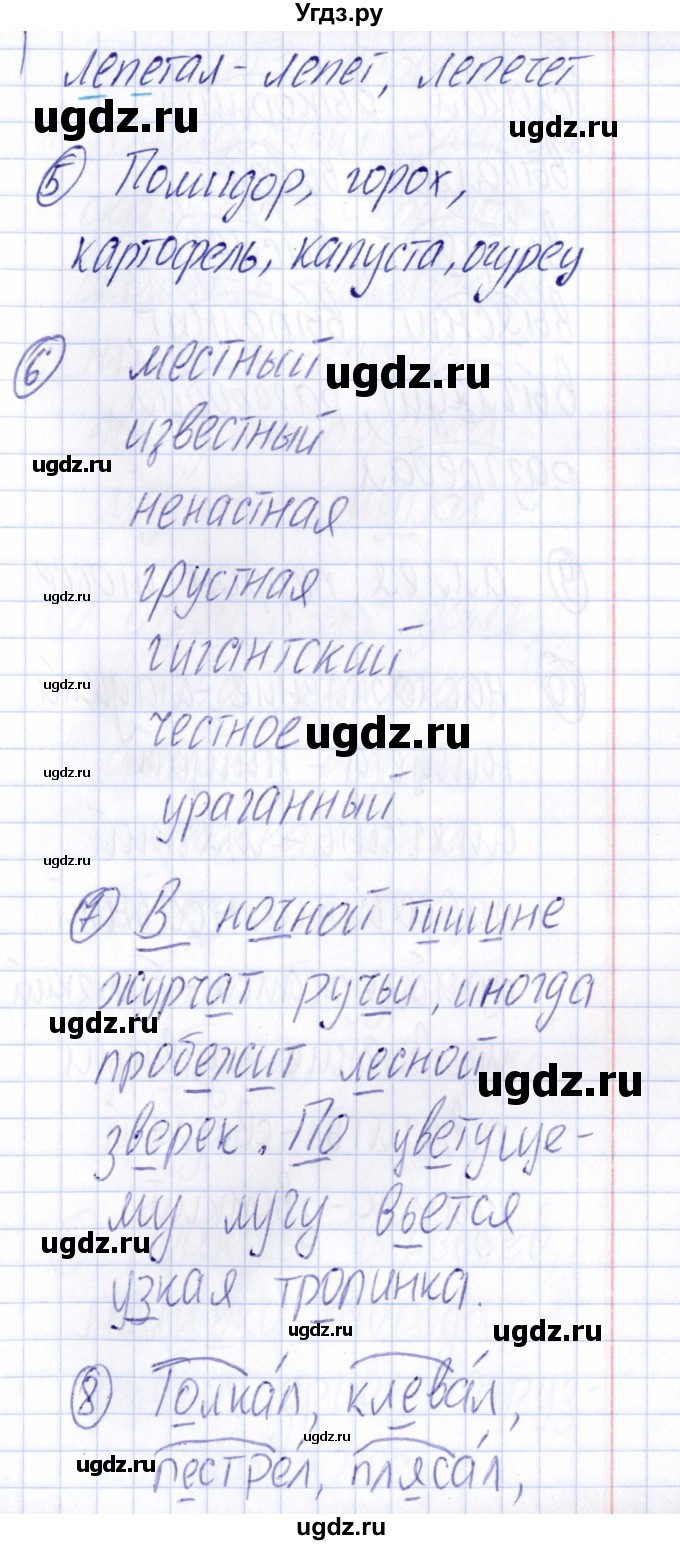 Угдз.ру
лепетал - лепет, лепечет
ugdz.ru
ugdz.ru
5 Помидор, горох,
картофель, капуста, огурец
6 местный
ugdz.ru
известный
ugdz.ru
ненастная
грустная
ugdz.ru
гигантский
ugdz.ru
честное
ugdz.ru
ugdz.ru
ураганный
ugdz.ru
7 В ночной тишине
журчат ручьи, иногда
ugdz.ru
пробежит лесной
ugdz.ru
зверек. По цветуще-
му лугу вьется
ugdz.ru
узкая тропинка.
ugdz.ru
ugdz.ru
8 Толка́л, клева́л,
ugdz.ru
ugdz.ru
пестре́л, пляса́л,
ugdz.ru